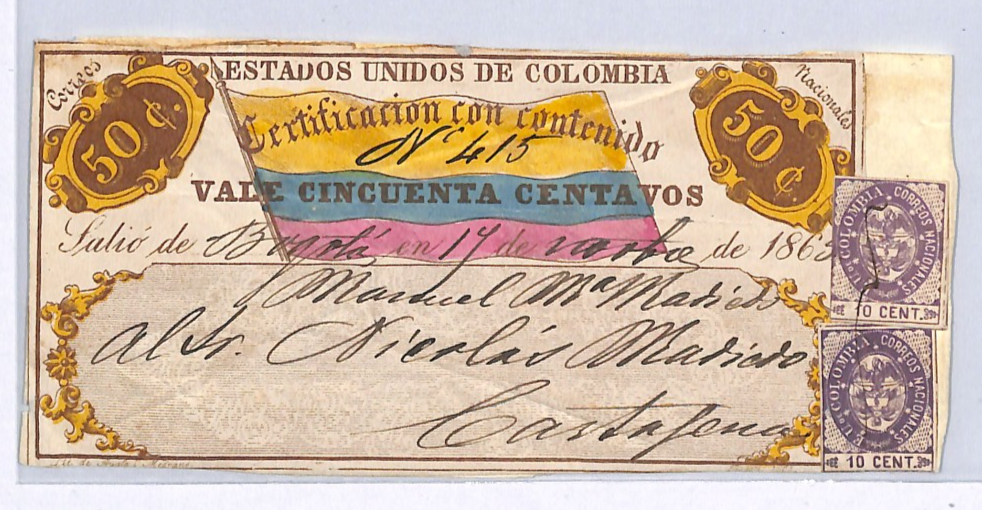 Correos
ESTADOS UNIDOS DE COLOMBIA
Nacionales
50 ¢.
Certificacion con contenido
50 ¢
Nº 415
VALE CINCUENTA CENTAVOS
Salió de Bogotá en 17 de de 186
Manuel Mª Madiedo
Al Sr. Nicolás Madiedo
Cartagena
Lit. de Ayala i Medrano.
E. U. DE COLOMBIA CORREOS NACIONALES
10 CENT.
E. U. DE COLOMBIA CORREOS NACIONALES
10 CENT.